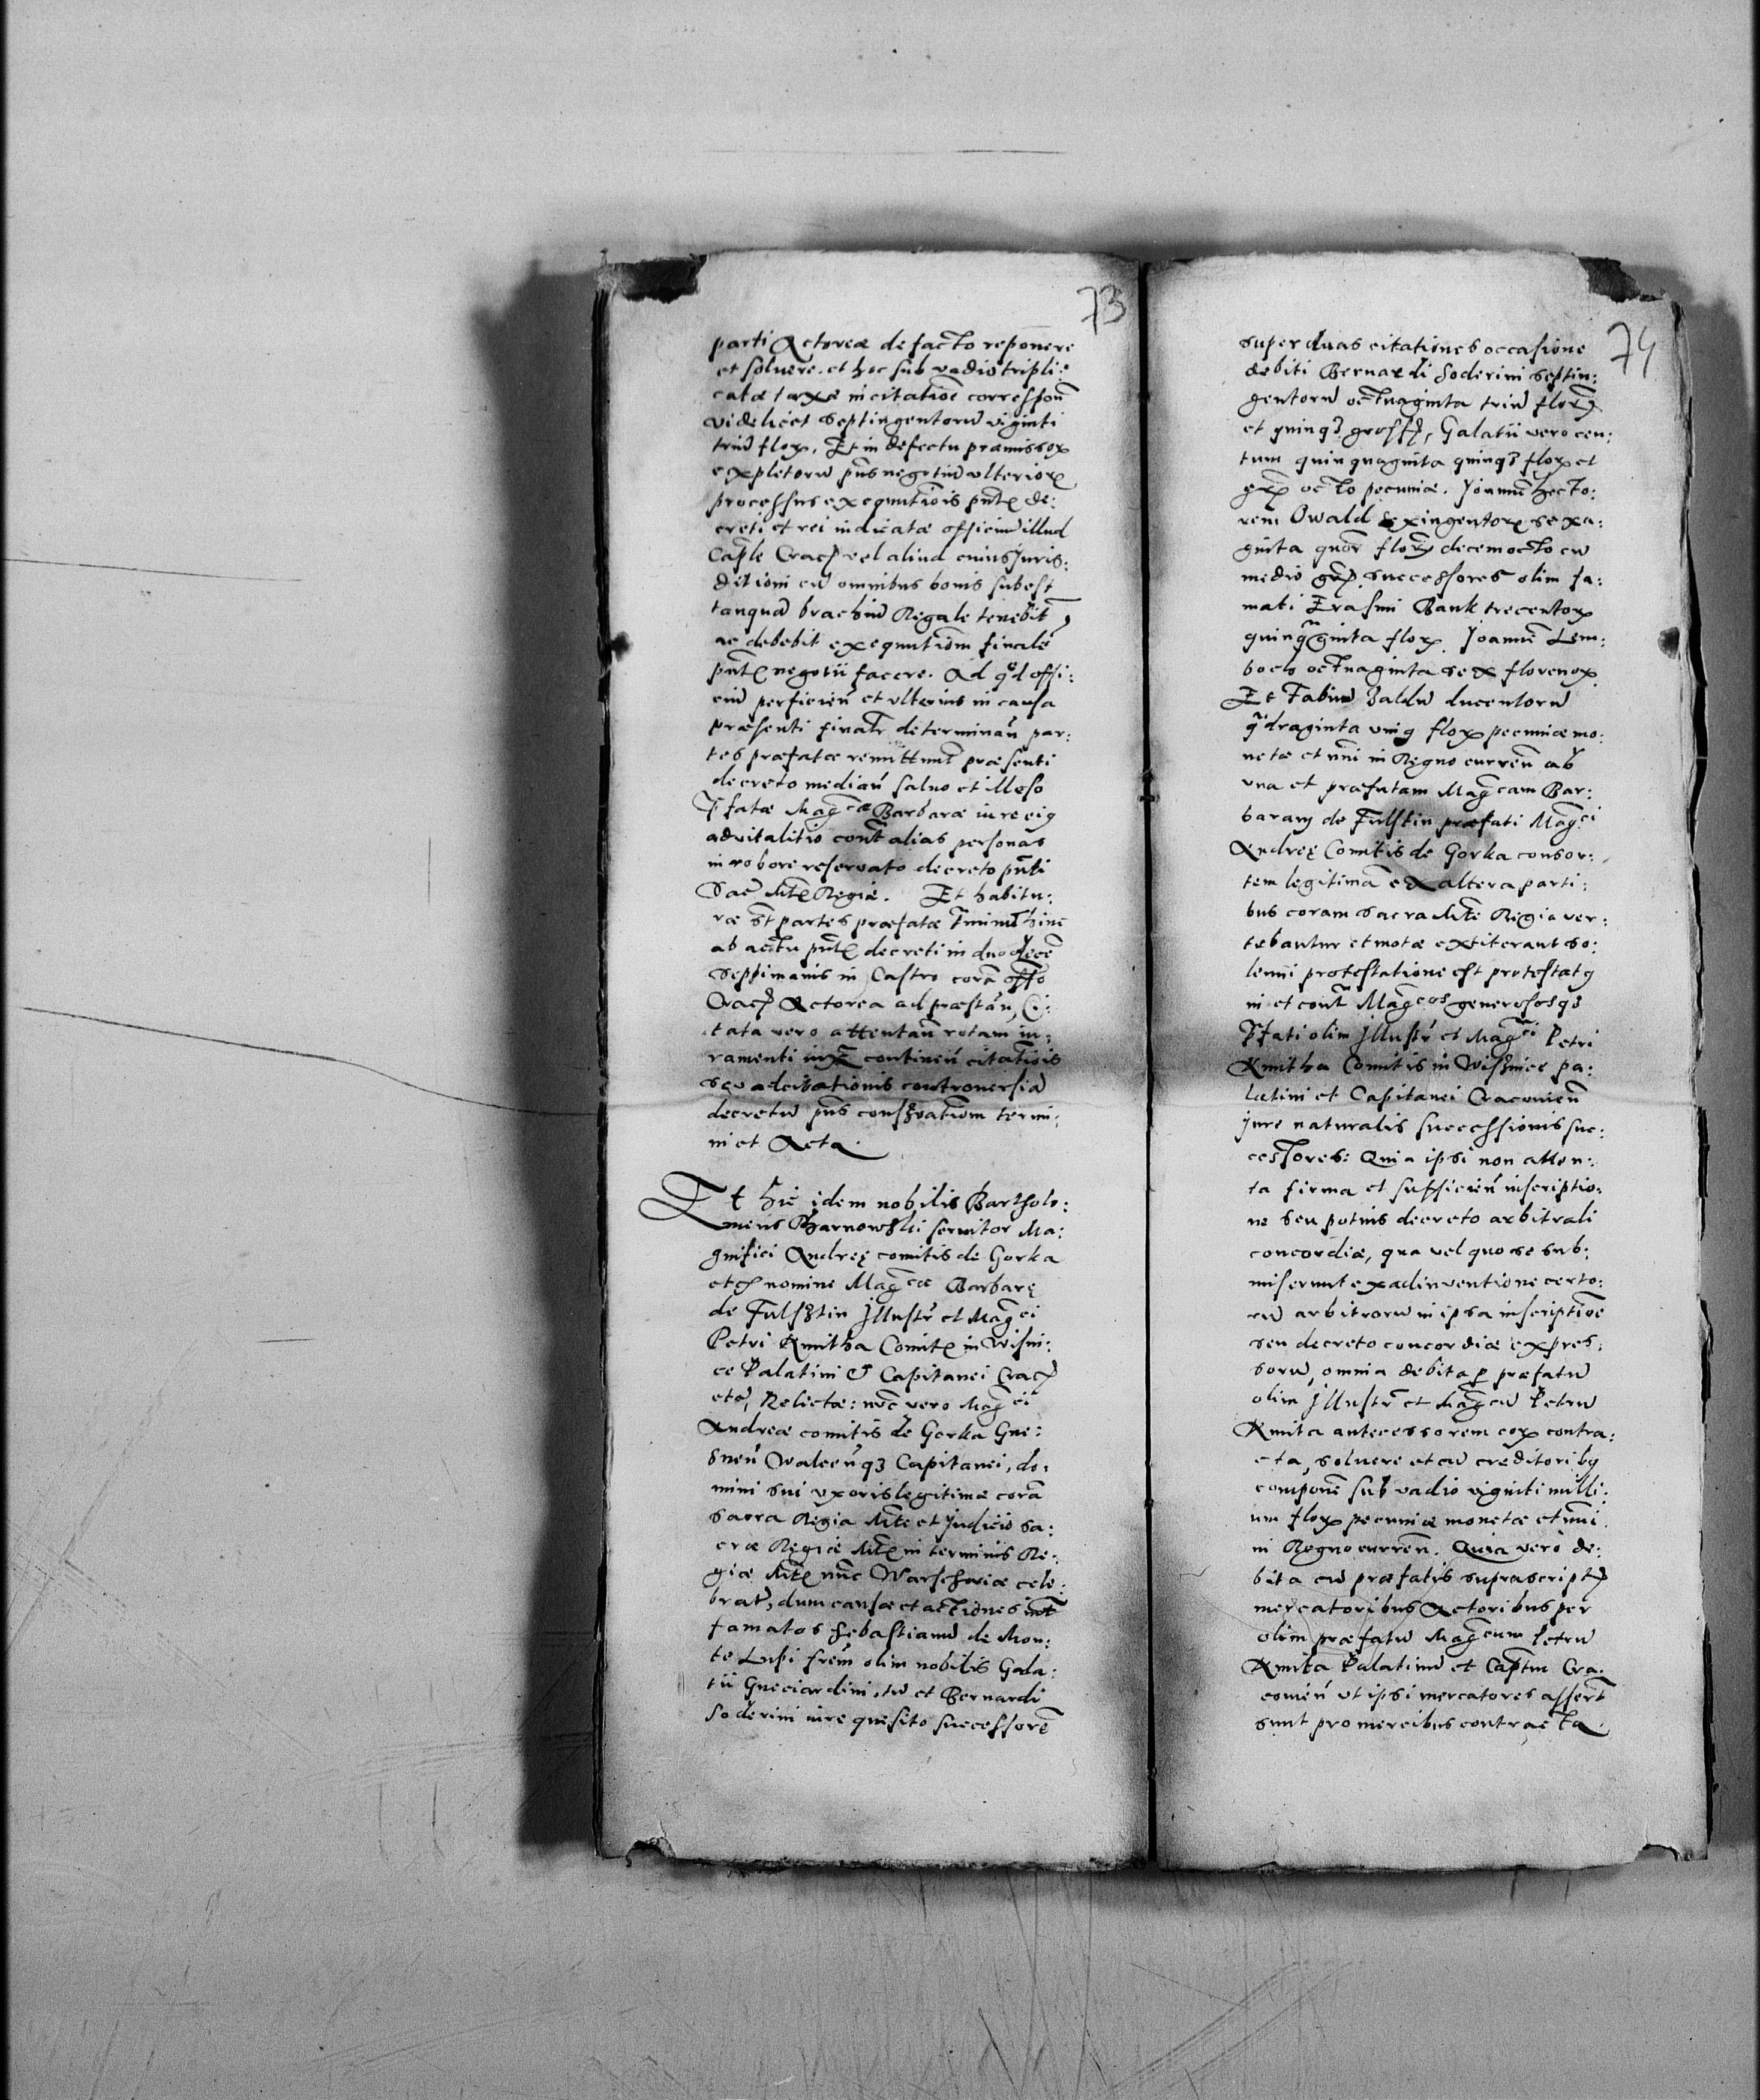 73
parti Actoreæ de facto reponere
et soluere. et hoc sub vadio tripli:
catæ taxæ in citatiōe correspoñ
videlicet septingentorū viginti
triū flor. Et in defectu præmissor
expletorū pñs negotiū vlterior
processus exequutiōis pñt de:
creti et rei iudicatæ officiū illud
Capłe Crac vel aliud cuius Juris:
ditioni cū omnibus bonis subest
tanquā brachiū Regale tenebit
ac debebit exequutiōm finalē
pñt negotii facere. Ad qd offi:
ciū perficień et vlterius in causa
præsenti finalr determinań par:
tes præfatæ remittunt præsenti
decreto mediań saluo et illeso
Pfatæ Magcæ Barbaræ iure eig
aduitalitio cont alias personas
in robore reservato decreto pñti
Sac Mte Regiæ. Et habitu:
ræ st partes præfatæ tminū hinc
ab actu pñt decreti in duodecē
septimanis in Castro corā offo
Crac Actorea ad præstań, Ci:
tata vero attentań rotam iu:
ramenti iuxa continen citatiōis
seu adcitationis controuersiā
decretū pñs conseruatiōm termi:
ni et Acta.
Et hic idem nobilis Bartholo:
meus Bharnowski seruitor Ma:
gnifici Andreę comitis de Gorka
etc nomine Magcæ Barbarę
de Fulsztin Illustr et Magci
Petri Kmitha Comit in Wisni:
ce Palatini & Capitanei Crac
etc, Relictæ: nūc vero Magci
Andreæ comitis de Gorka Gne:
sneń Walceńq3 Capitanei, do:
mini sui vxoris legitimæ corā
sacra Regia Mte et Judicio Sa:
cræ Regiæ Mte in terminis Re:
giæ Mte nūc Warschoviæ cele:
brat, dum causæ et actiones int
famatos Sebastianū de Mon:
te Lupi frēm olim nobilis Gala:
tii Gucciardini, tū et Bernardi
Soderini iure quesito successorē
74
super duas citationes occasione
debiti Bernardi Soderini septin:
gentorū octuaginta triū flor
et quinq3 gross, Galatii vero cen:
tum quinquaginta quinq3 flor et
gr octo pecuniæ. Joannē Hecto:
rem Owald sexingentor sexa:
ginta quor flor decemocto cū
medio gr. successores olim fa:
mati Erasmi Bank trecentor
quinqginta flor. Joannē Lem:
bock octuaginta sex florenor
Et Fabiū Baldū ducentorū
qdraginta vnig flor pecuniæ mo:
netæ et nūi in Regno currēn ab
vna et præfatam Magcam Bar:
baram de Fulstin præfati Magci
Andreę Comitis de Gorka consor:
tem legitimā ex altera parti:
bus coram sacra Mte Regia ver:
tebantur et motæ extiterant so:
lenni protestatione est protestatg
in et cont Magcos generososq3
Pfati olim Illustr et Magci Petri
Kmitha Comitis in Wisznicz pa:
latini et Capitanei Cracouień
Jure naturalis successionis suc:
cessores: Quia ipsi non atten:
ta firma et sufficień inscriptio:
ne seu potius decreto arbitrali
concordiæ, qua vel quo se sub:
miserunt ex adinventione certo:
rū arbitrorū in ipsa inscriptiōe
seu decreto concordiæ expres:
sorū, omnia debita p præfatū
olim Illustr et Magcū Petrū
Kmita antecessorem eor contra:
cta, soluere et cū creditoribg
componē sub vadio viginti milli:
um flor pecuniæ monetæ et nūi.
in Regno currēn. Quia verò de:
bita cū præfatis suprascript
mercatoribus Actoribus per
olim præfatū Magcum Petrū
Kmita Palatinū et Captm Cra:
couień vt ipsi mercatores assert
sunt pro mercibus contracta.